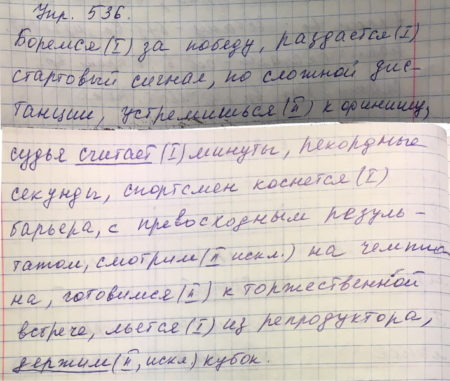 Упр. 536.
Боремся (I) за победу, раздастся (I)
стартовый сигнал, по сложной дис-
танции, устремишься (II) к финишу,
судья считает (I) минуты, рекордные
секунды, спортсмен коснется (I)
барьера, с превосходным резуль-
татом, смотрим (II искл.) на чемпио
на, готовимся (II) к торжественной
встрече, льется (I) из репродуктора,
держим (II, искл) кубок.